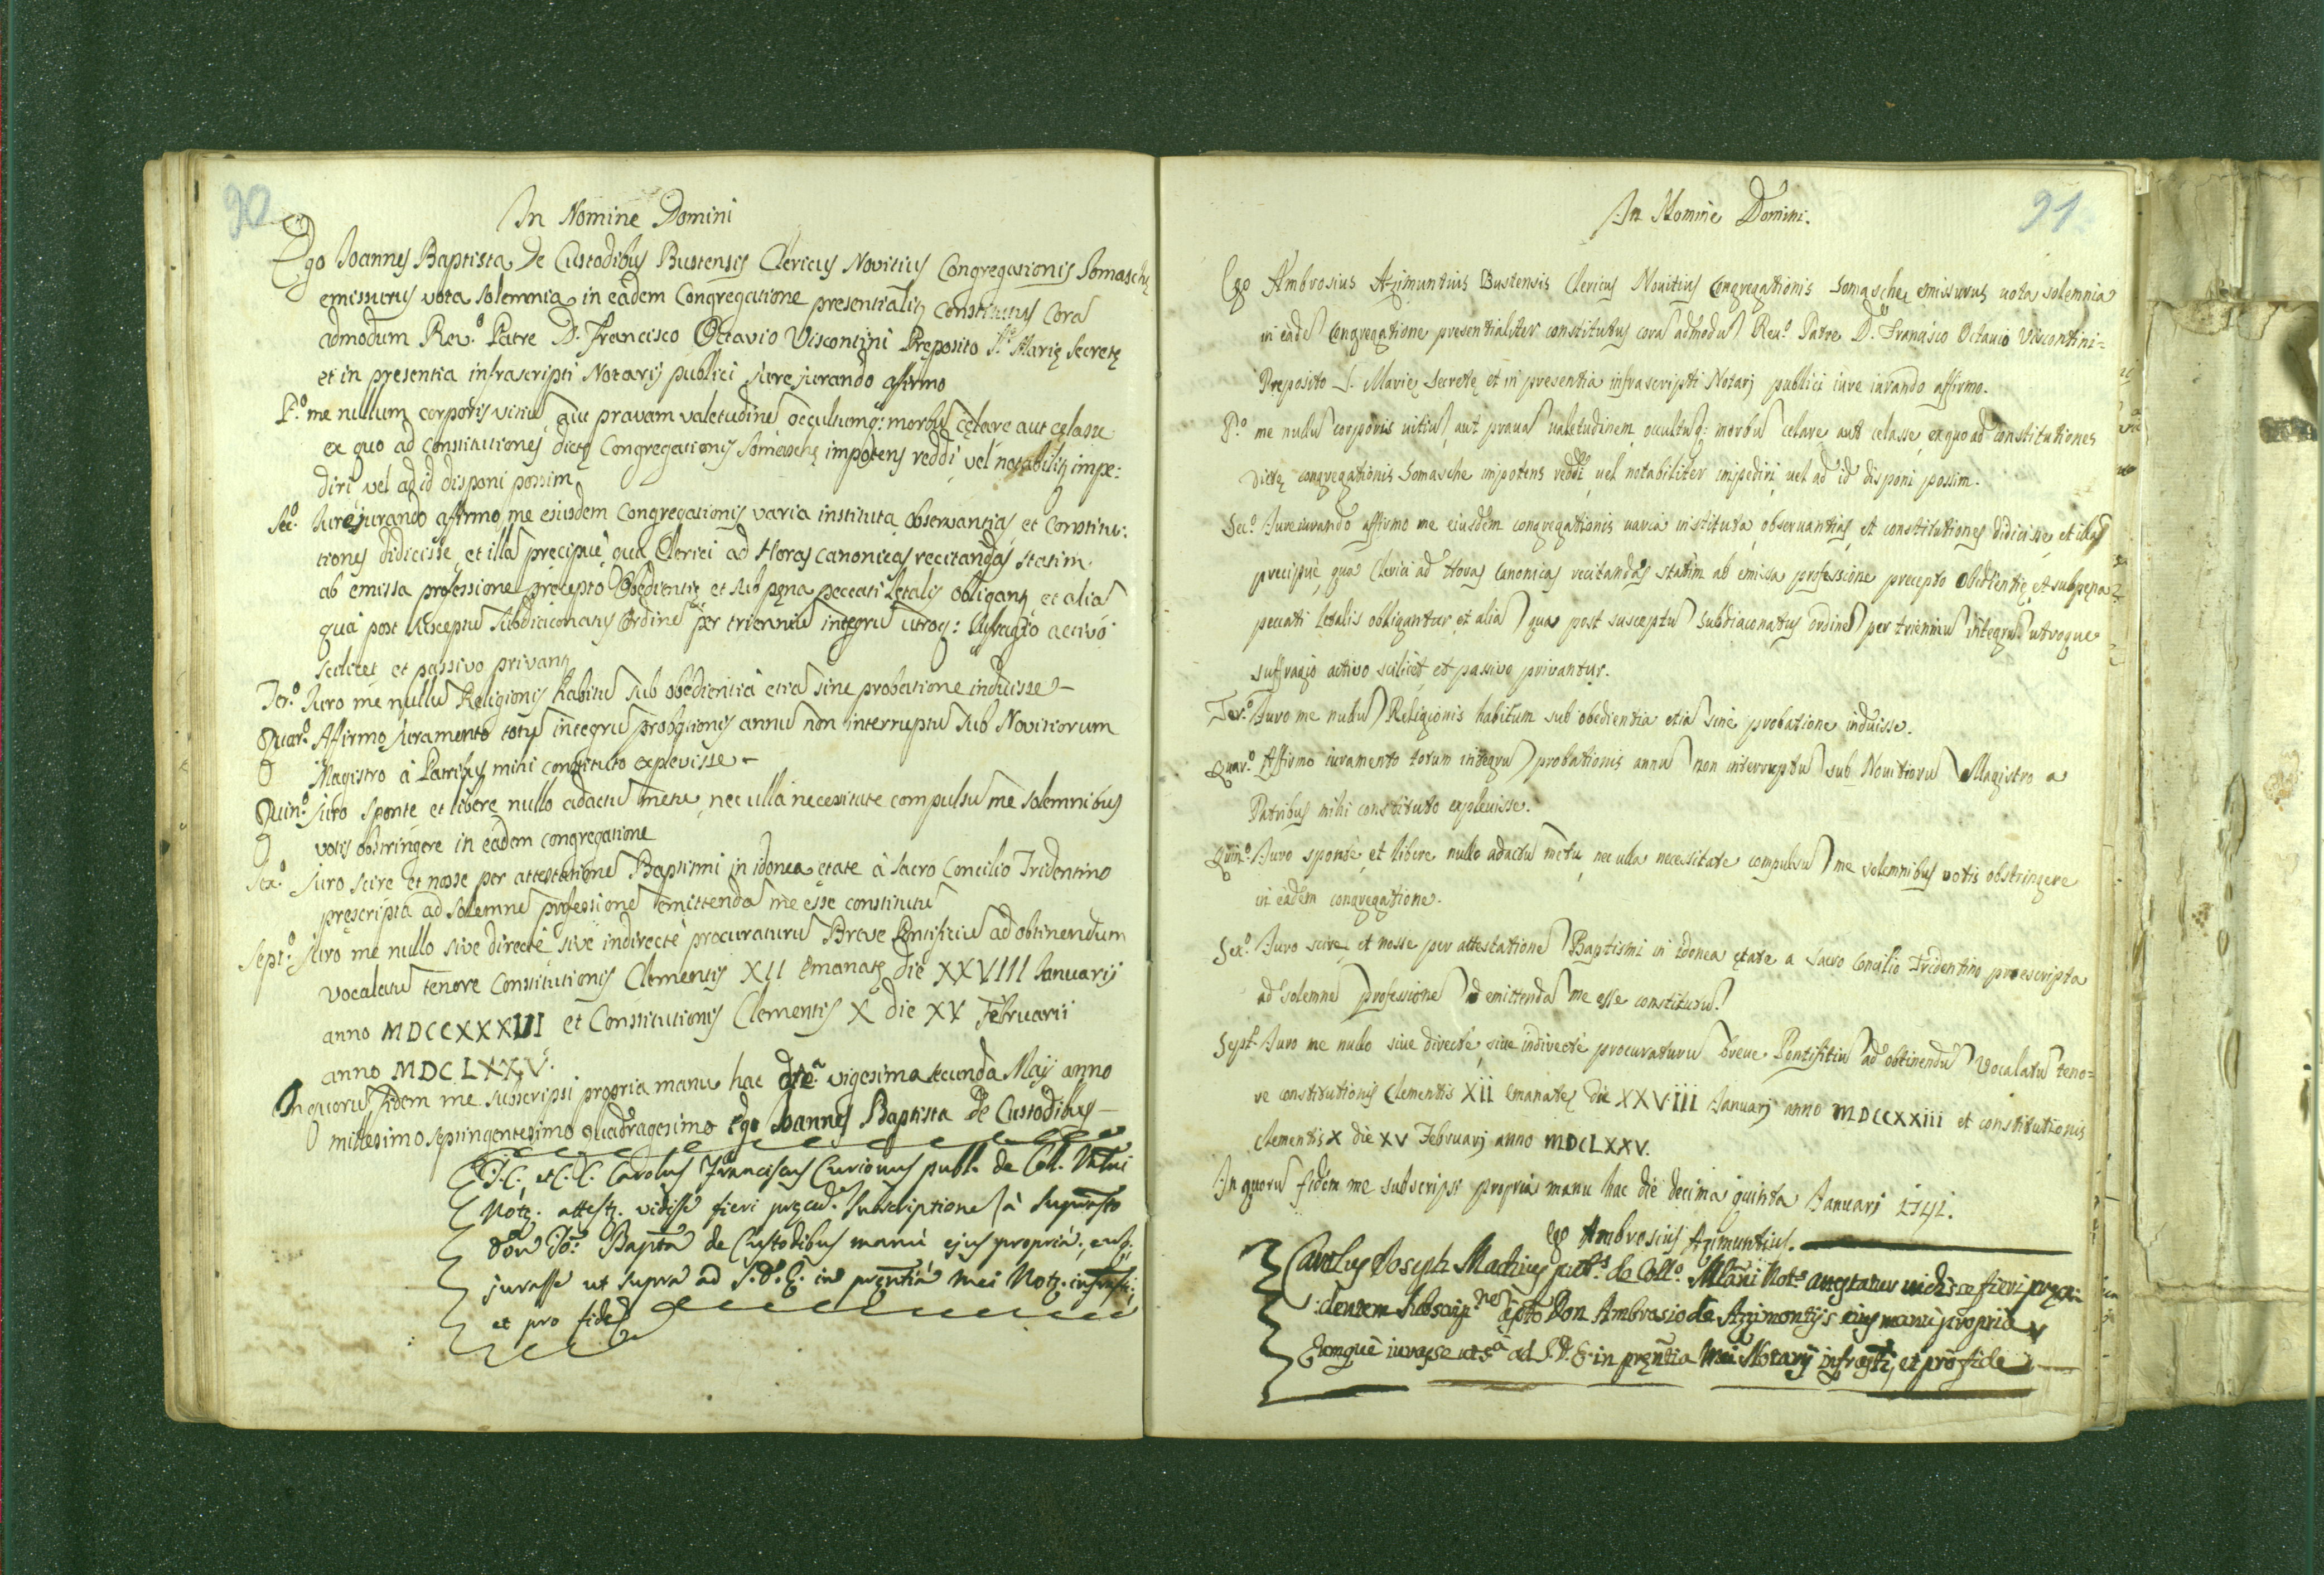 90
In Nomine Domini
Ego Joannes Baptista De Custodibus Bustensis Clericus Novitius Congregationis Somaschę
emissurus vota solemnia in eadem Congregatione presentialitr constitutus Corã
admodum Rev.º Patre D. Francisco Octavio Viscontini Preposito S. Marię Secretę
et in presentia infrascripti Notarij publici jure jurando affirmo
P.º me nullum corporis vitiũ, aut pravam valetudinẽ occultumq; morbũ cęlare aut cęlasse
ex quo ad Constitutiones dictę Congregationis Somaschę impotens reddi, vel notabilitr impe:
diri vel ad id disponi possim
Sec.º Jurejurando affirmo me eiusdem Congregationis varia instituta, observantias et Constitu:
tiones didicisse, et illã precipuè, quã Clerici ad Horas canonicas recitandas statim
ab emissa professione prẹcepto Obedientię et sub pęna peccati Letalis obligantr, et aliã
quà post susceptũ subdiaconatus Ordinẽ per trienniũ integrũ utroq: suffragio activo
scilicet et passivo privantr
Ter.º Juro me nullũ Religionis habitũ sub obedientia etiã sine probatione induisse -
Quar.º Affirmo juramento totũ integrũ probationis annũ non interruptũ sub Novitiorum
Magistro à Patribus mihi constituto explevisse -
Quin.º Juro sponte et liberè nullo adactũ metu, nec ulla necessitate compulsũ me solemnibus
votis obstringere in eadem congregatione
Sex.º Juro scire et nosse per attestationẽ Baptismi in idonea ętate à Sacro Concilio Tridentino
pręscripta ad solemnẽ professionẽ emittendã me esse constitutũ
Sept.º Juro me nullo sive directè sive indirectè procuraturũ Breve Pontificiũ ad obtinendum
vocalatũ tenore Constitutionis Clementis XII emanatę die XXVIII Januarij
anno MDCCXXXIII et Constitutionis Clementis X die XV Februarii
anno MDCLXXV.
In quorũ fidem me subscripsi propria manu hac die vigesima secunda Maij anno
millesimo septingentesimo quadragesimo Ego Joannes Baptista De Custodibus
J.C. et C. C. Carolus Franciscus Curionus publ. de Coll. Mlni
Notr. attestr. vidisse fieri pręced. subscriptionẽ à suprasto
Don Jo: Bapta de Custodibus manù ejus proprià, eumq;
jurasse ut supra ad S. D. E. in prẹntia mei Notr. infrasti,
et pro fide
91
In Nomine Domini.
Ego Ambrosius Azimuntius Bustensis Clericus Nouitius Congregationis Somaschę emissurus uota solemnia
in eadẽ Congregatione presentialiter constitutus corã admodũ Reu.º Patre D. Francisco Octauio Viscontini=
Preposito S. Marię Secretę et in presentia infrascripti Notarj publici iure iurando affirmo.
P.º me nullũ corporis uitiũ, aut prauã ualetudinem, occultũq: morbũ celare aut celasse, ex quo ad constitutiones
dictę congregationis Somasche impotens reddi, uel notabiliter impediri, uel ad id disponi possim.
Sec.º Iureiurando affirmo me eiusdem congregationis uaria instituta, obseruantias, et constitutiones didicisse, et illã
precipuè, qua Clerici ad Horas Canonicas recitandas statim ab emissa professione precepto Obedientię, et sub pęna
peccati letalis obligantur, et aliã, qua post susceptũ subdiaconatus ordinẽ per trienniũ integrũ utroque
suffragio activo scilicet et passivo privantur.
Ter.º Iuro me nullũ Religionis habitum sub obedientia etiã sine probatione induisse.
Quar.º Affirmo iuramento totum integrũ probationis annũ non interruptũ sub Nouitiorũ Magistro a
Patribus mihi constituto expleuisse.
Quin.º Iuro sponte, et libere nullo adactũ metu, nec ulla necessitate compulsũ me solemnibus votis obstringere
in eadem congregatione.
Sex.º Iuro scire, et nosse per attestationẽ Baptismi in idonea ętate a Sacro Concilio Tridentino proescripta
ad solemnẽ professionẽ ad emittendã me esse constitutũ.
Sept.º Iuro me nullo siue directè, siue indirectè procuraturũ breue Pontifitiũ ad obtinendũ Vocalatũ teno=
re constitutionis Clementis XII emanatę die XXVIII Januarj anno MDCCXXIII et constitutionis
Clementis X die XV Februarj anno MDCLXXV.
In quorũ fidem me subscripsi propria manu hac die decima quinta Ianuarj 1741.
Ego Ambrosius Azimuntius.
Carolus Joseph Machius pub.s de Coll.º Mlani Not.s attestatur uidisse fieri pręce:
:dentem Subscrip.nem a spto Don Ambrosio de Azimontijs eius manù propria
Eumque iurasse ut sª ad S. D. E. in pręntia Mei Notarij infrasti, et pro fide